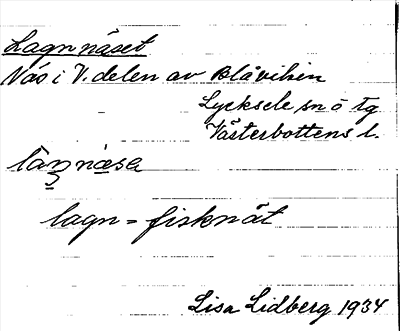 Lagnnäset
Näs i V. delen av Blåviken
Lycksele sn o tg
Västerbottens l.
lāŋnæsa
lagn = fisknät
Lisa Lidberg 1934